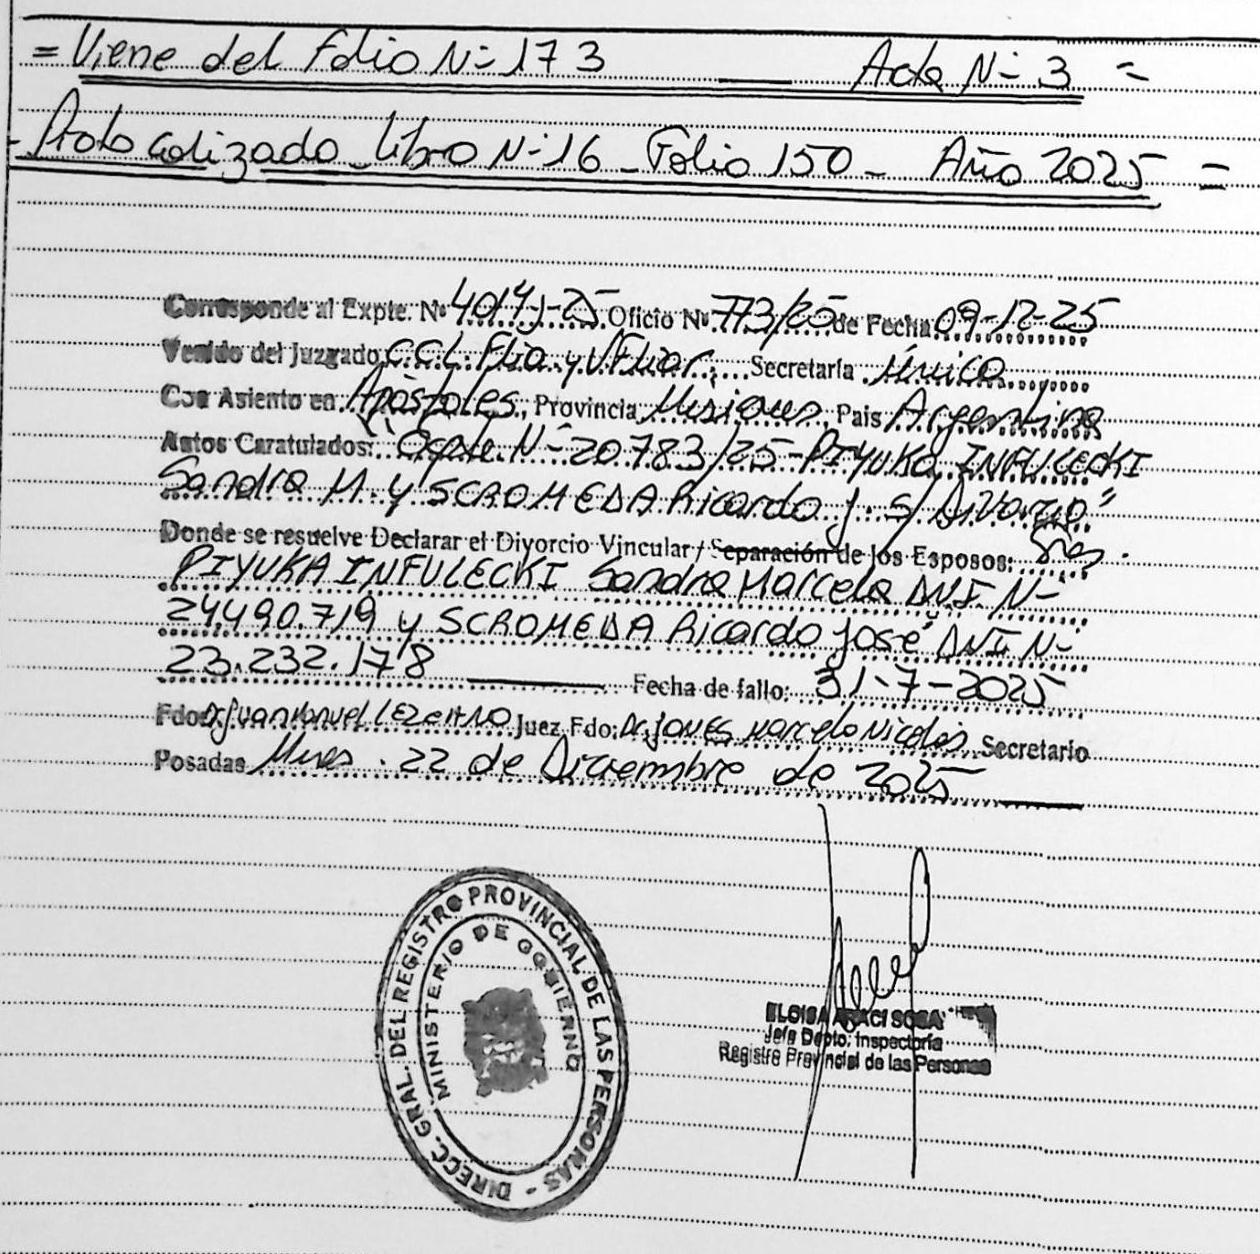 = Viene del Folio N- 173 ___ Acta N- 3 =
- Protocolizado Libro N- 16 - Folio 150 - Año 2025 =
Corresponde al Expte. Nº 4014-J-25 Oficio Nº 773/25 de Fecha 09-12-25
Venido del Juzgado C.C.L. Flia y V. Fliar, Secretaría Única
Con Asiento en Apóstoles, Provincia Misiones, Pais Argentina
Autos Caratulados: "Expte. N- 20.783/25 - PIYUKA INFULECKI
Sandra M. y SCROMEDA Ricardo J. S/ Divorcio"
Donde se resuelve Declarar el Divorcio Vincular / Separación de los Esposos: Sres.
PIYUKA INFULECKI Sandra Marcela DNI N-
24.490.719 y SCROMEDA Ricardo José DNI N-
23.232.178 ___ Fecha de fallo: 31-7-2025
Fdo: Dr Juan Manuel LEZCANO Juez Fdo: Dr. JONES Marcelo Nicolás Secretario
Posadas Mnes. 22 de Diciembre de 2025
DIRECC. GRAL. DEL REGISTRO PROVINCIAL DE LAS PERSONAS -
MINISTERIO DE GOBIERNO
ELOISA ARACI SOSA
Jefa Depto. Inspectoría
Registro Provincial de las Personas